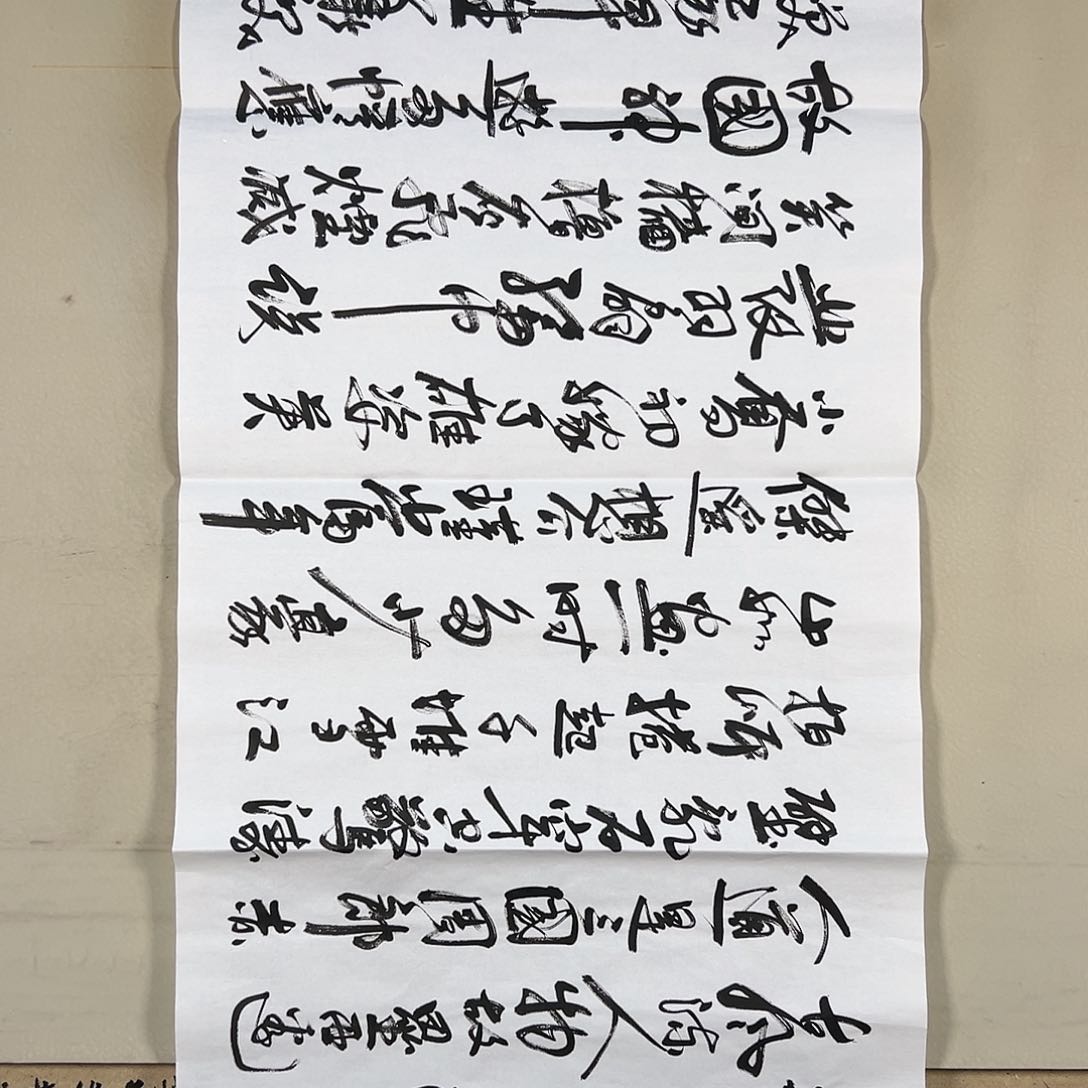 古風流人物故壘西邊
人道是三國周郎赤
壁亂石穿空驚濤
拍岸捲起千堆雪江
山如畫一時多少豪
傑遥想公瑾當年
小喬初嫁了雄姿英
發羽扇綸巾談
笑間檣櫓灰飛煙滅
故國神遊多情應